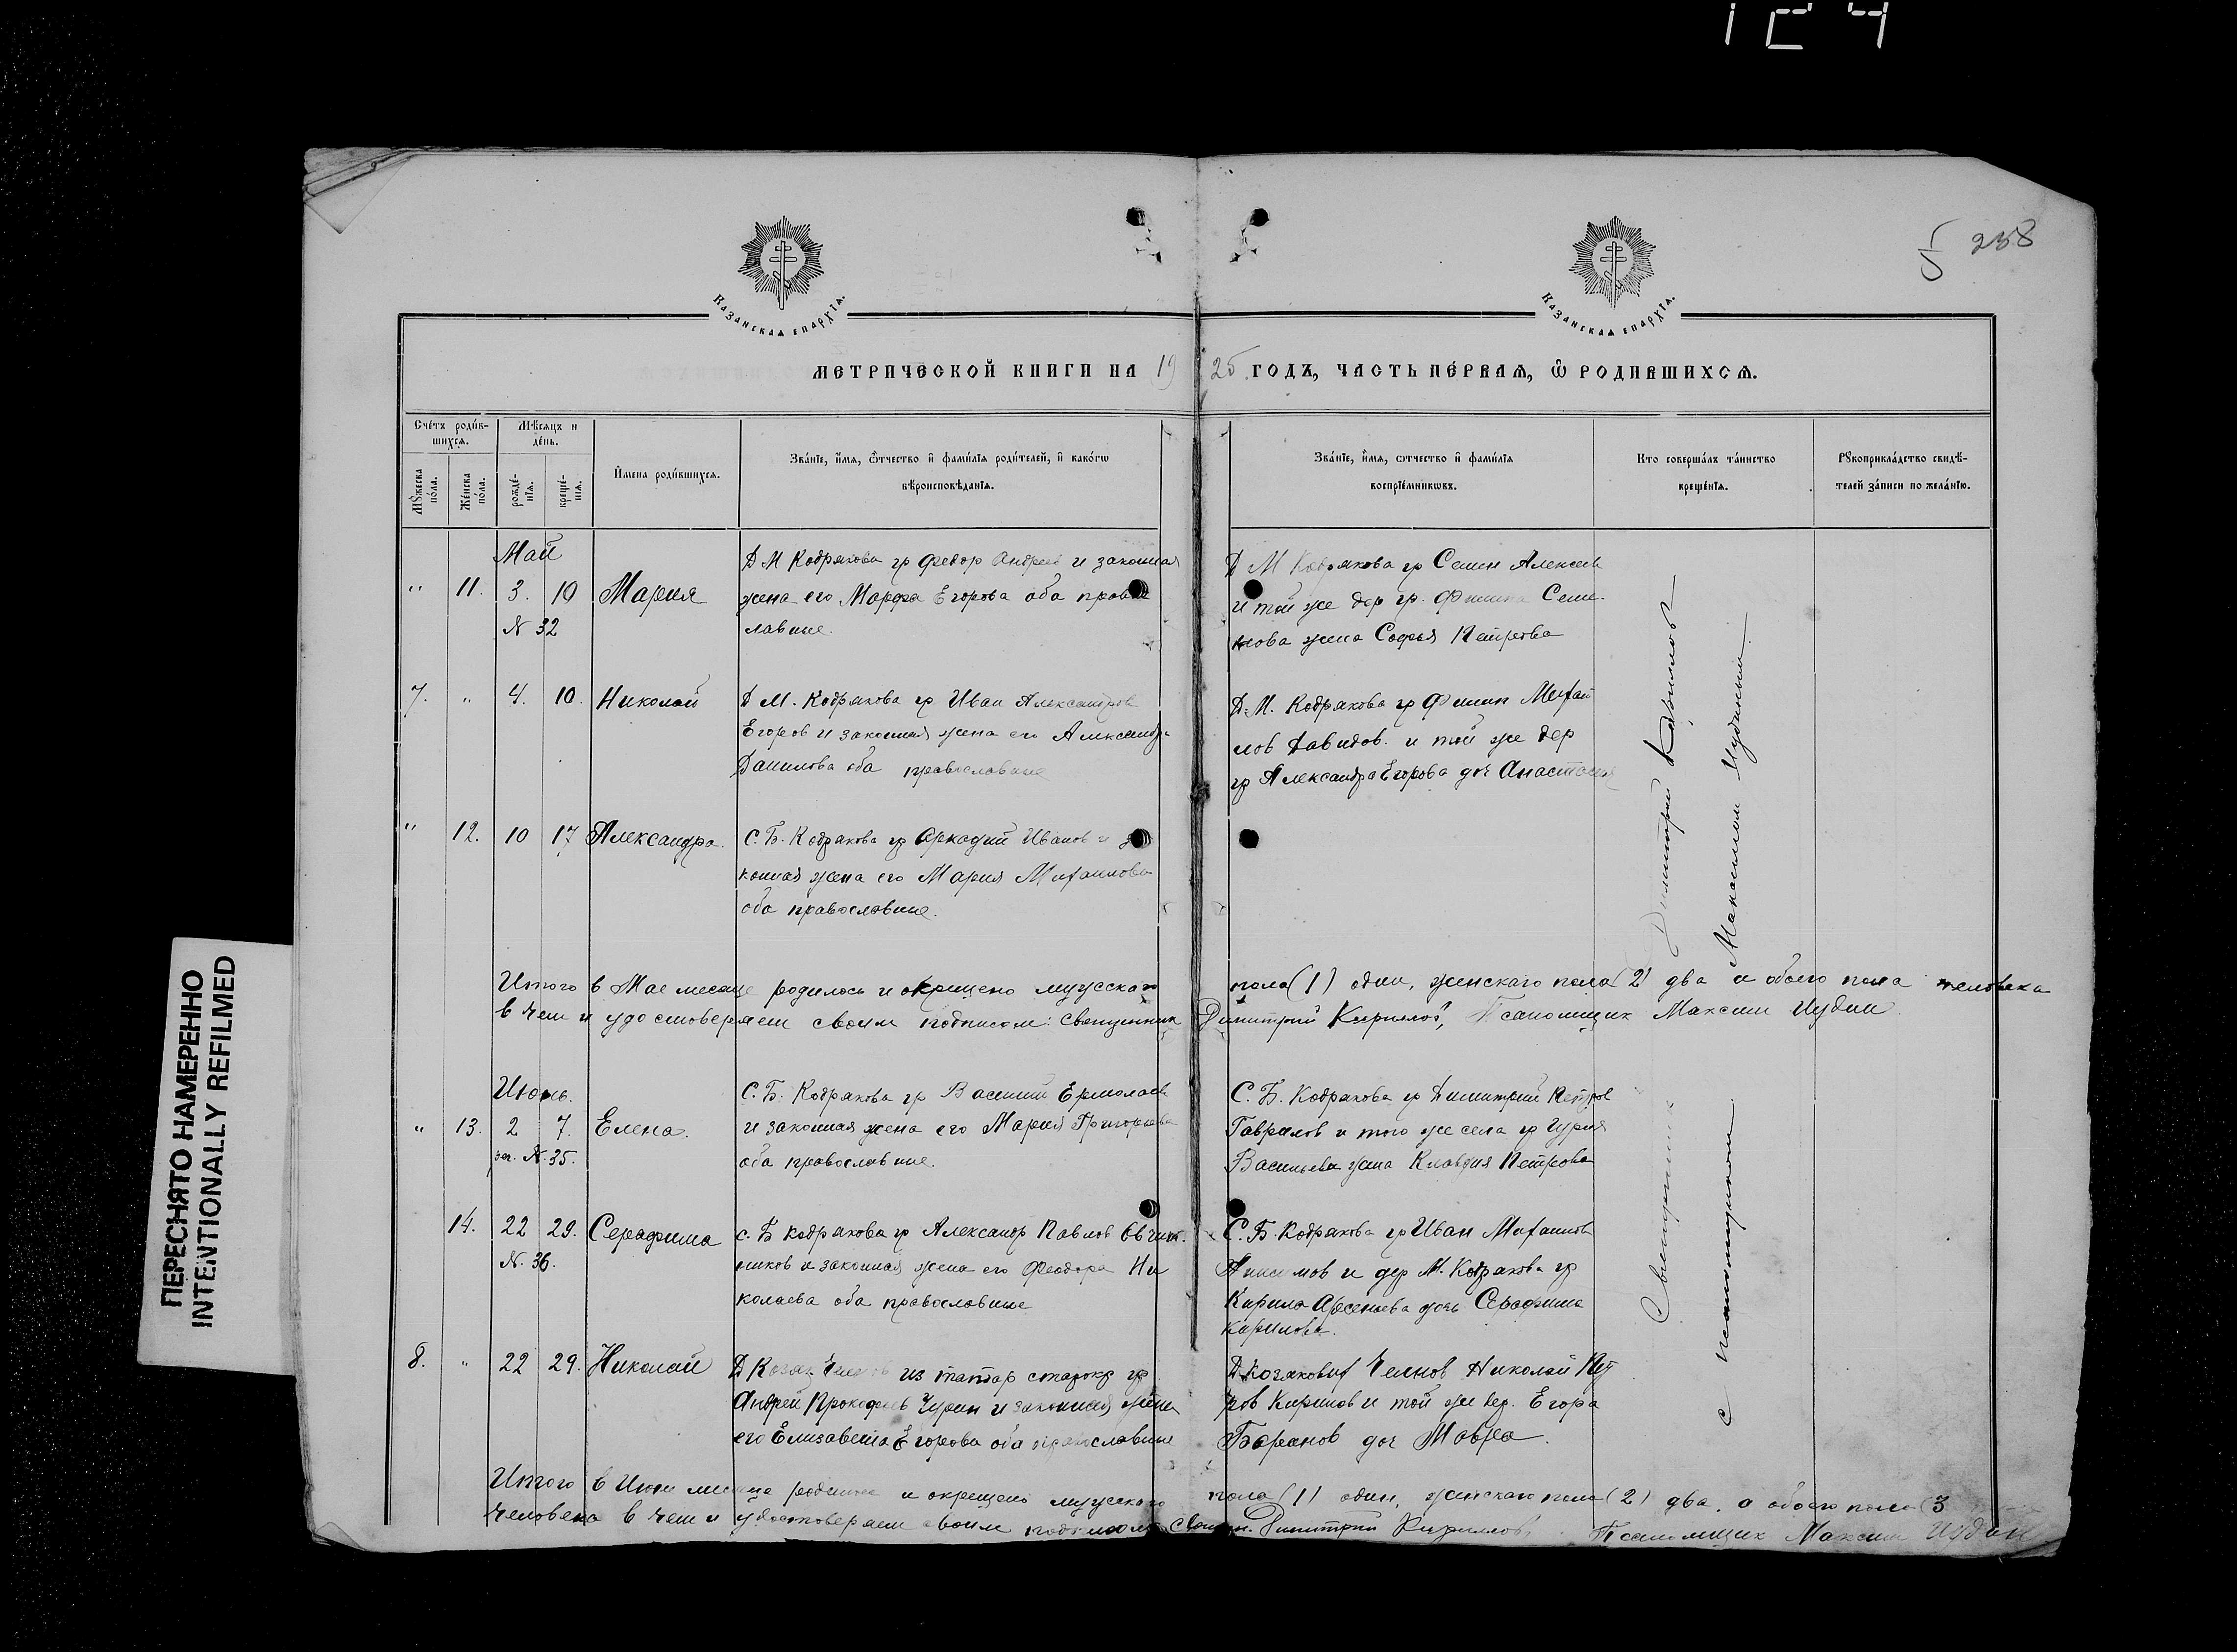 124
5 238
Казанская епархїѧ.
Казанская епархїѧ.
МЕТРИЧЕСКОЙ КНИГИ НА 19 25 ГОДЪ, ЧАСТЬ ПЕРВАѦ, Ѽ РОДИВШИХСѦ.
Сче́тъ роди́вшихсѧ.
Мѣсѧцъ и де́нь.
Мꙋ́жеска по́ла.
Же́нска по́ла.
рожде́нїѧ.
креще́нїѧ.
И҆мена роди́вшихсѧ.
Зва́нїе, и҆мѧ, ѻ҆тчество и҆ фами́лїѧ роди́телей, и҆ како́гѡ
вѣроисповѣ́данїѧ.
Зва́нїе, и҆мѧ, ѻтчество и҆ фами́лїѧ
воспрїе́мникѡвъ.
Кто соверша́лъ та́инство
креще́нїѧ.
Рꙋкоприкла́дство свидѣ-
телей за́писи по жела́нїю.
Май
" 11. 3. 10 Мария
N 32
Д М Кодрякова гр Федор Андреев и законная
жена его Марфа Егорова оба право
лавные.
Д М Кодрякова гр Семен Алексеев
и той же дер гр. Филипа Семе-
нова жена Софья Петрова
7. " 4. 10. Николай
Д М. Кодрякова гр Иван Александров
Егоров и законная жена его Александра
Данилова оба православные
Д. М. Кодрякова гр Филип Михай
лов Давидов. и той же дер
гр Александра Егорова доч Анастасия
" 12. 10 17 Александра.
С. Б. Кодрякова гр Аркадий Иванов и за
конная жена его Мария Михаилова
оба православные.
Итого в Мае месяце родилось и окрещено мужскаго пола (1) один, женскаго пола (2) два и обоего пола человека
в чем и удостоверяем своим подписом: Священник Димитрий Кирилов, Псаломщик Максим Иудин.
Июнь.
" 13. 2 7. Елена.
N. 35.
С. Б. Кодрякова гр Василий Ермолаев
и законная жена его Мария Григорьева
оба православные.
С. Б. Кодрякова гр Димитрий Петров
Гаврилов и того же села гр Гурия
Васильева жена Клавдия Петрова
14. 22 29. Серафима
N. 36.
с. Б Кодрякова гр Александр Павлов Овчин-
ников и законная жена его Феодора Ни
колаева оба православные
С. Б. Кодрякова гр Иван Михаилов
Анисимов и дер М. Кодрякова гр
Кирила Арсеньева дочь Серафима
Кирилова.
8. " 22 29. Николай
Д Козяк Челнов из татар старокр гр
Андрей Прокофьев Чурин и законная жена
его Елизавета Егорова оба православные
Д. Козяковых Челнов Николай Пет
ров Кирилов и той же дер. Егора
Баранов доч Мавра.
Итого в Июне месяце родилось и окрещено мужскаго пола (1) один, женскаго пола (2) два. а обоего пола (3
Человека в чем и удостоверяем своим подписом Священ. Димитрий Кирилов. Псаломщик Максим Иудин
Священник Димитрий Кирилов
с псаломщиком Максимом Иудиным
ПЕРЕСНЯТО НАМЕРЕННО
INTENTIONALLY REFILMED